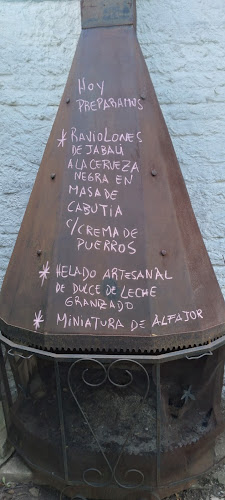 HOY
PREPARAMOS
* RAVIOLONES
DE JABALÍ
A LA CERVEZA
NEGRA EN
MASA DE
CABUTIA
C/CREMA DE
PUERROS
* HELADO ARTESANAL
DE DULCE DE LECHE
GRANIZADO
* MINIATURA DE ALFAJOR